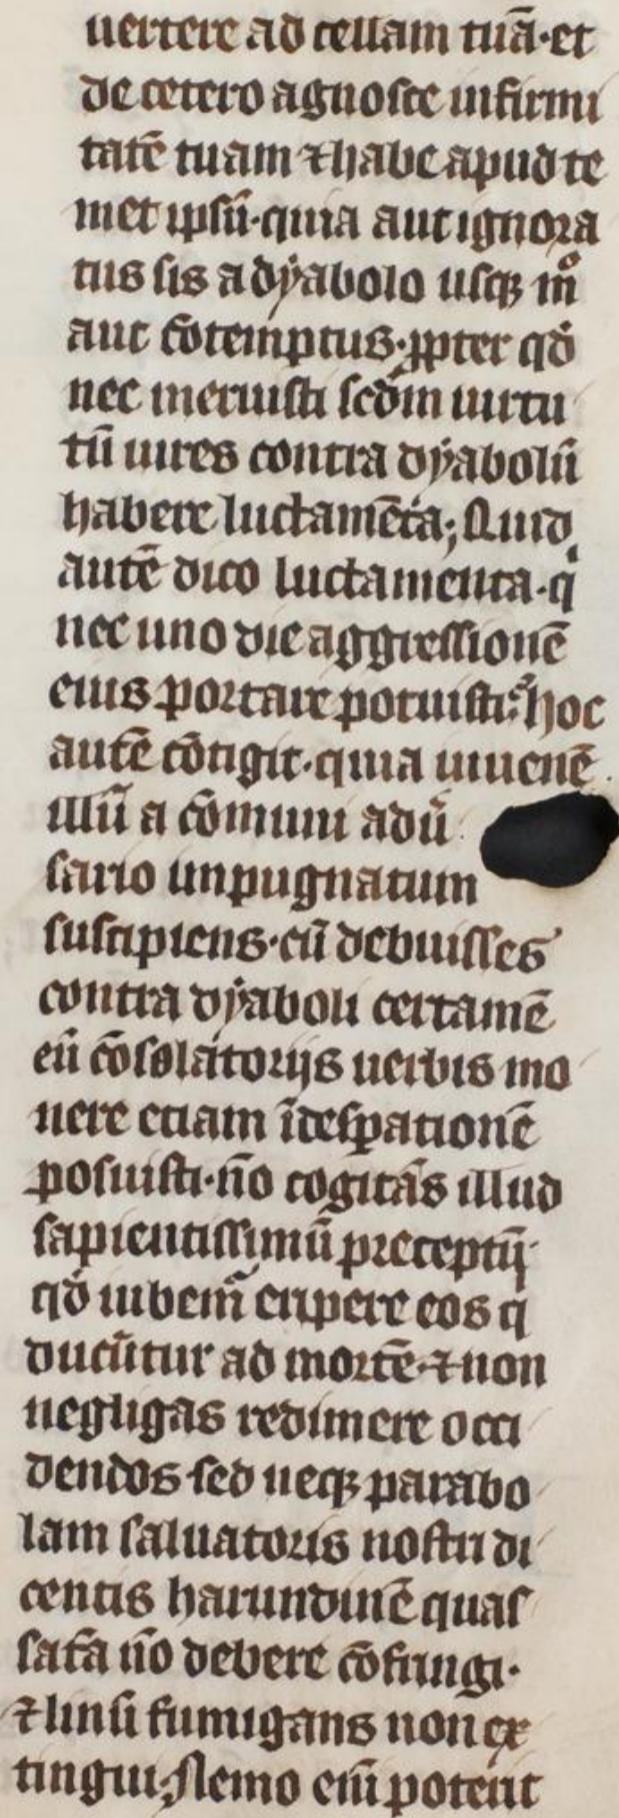 uertere ad cellam tuā·et
de cetero agnosce infirmi
tatē tuam ⁊ habe apud te
met ipsū·quia aut ignora
tus sis a dyabolo usqꝫ mͦ
aut ꝯ̄temptus·ꝓpter qd̄
nec meruisti scd̄m uirtu
tū uires contra dyabolū
habere luctamēta; Quid
autē dico luctamenta·qͥ
nec uno die aggressionē
eius portare potuisti· hoc
autē cōtigit·quia iuuenē
illū a cōmuni adū
sario inpugnatum
suscipiens·cū debuisses
contra dyaboli certamē
eū cōsolatorijs uerbis mo
nere etiam īdesꝑationē
posuisti·nō cogitās illud
sapientissimū preceptū·
qd̄ iubem̄ eripere eos q
ducūtur ad mortē·⁊ non
negligas redimere occi
dendos·sed neqꝫ parabo
lam saluatoris nostri di
centis harundinē quas
satā nō debere cōfringi·
⁊ linū fumigans non ex
tingui; Nemo eni̅ poterit